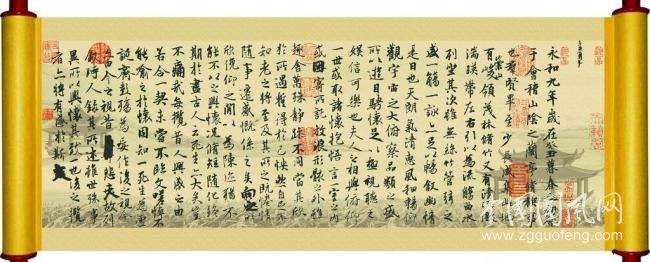 永和九年歲在癸丑暮春之初會
于會稽山陰之蘭亭脩稧事
也羣賢畢至少長咸集此地
有崇山峻領茂林脩竹又有清流激
湍暎帶左右引以為流觴曲水
列坐其次雖無絲竹管弦之
盛一觴一詠亦足以暢敘幽情
是日也天朗氣清惠風和暢仰
觀宇宙之大俯察品類之盛
所以遊目騁懷足以極視聽之
娛信可樂也夫人之相與俯仰
一世或取諸懷抱悟言一室之內
或因寄所託放浪形骸之外雖
趣舍萬殊靜躁不同當其欣
於所遇蹔得於己快然自足不
知老之將至及其所之既惓情
隨事遷感慨係之矣向之所
欣俛仰之間以為陳迹猶不
能不以之興懷況脩短隨化終
期於盡古人云死生亦大矣豈
不痛哉每攬昔人興感之由
若合一契未嘗不臨文嗟悼不
能喻之於懷固知一死生為虛
誕齊彭殤為妄作後之視今
亦由今之視昔悲夫故列
敘時人錄其所述雖世殊事
異所以興懷其致一也後之攬
者亦將有感於斯文
中国国风网
www.zgguofeng.com